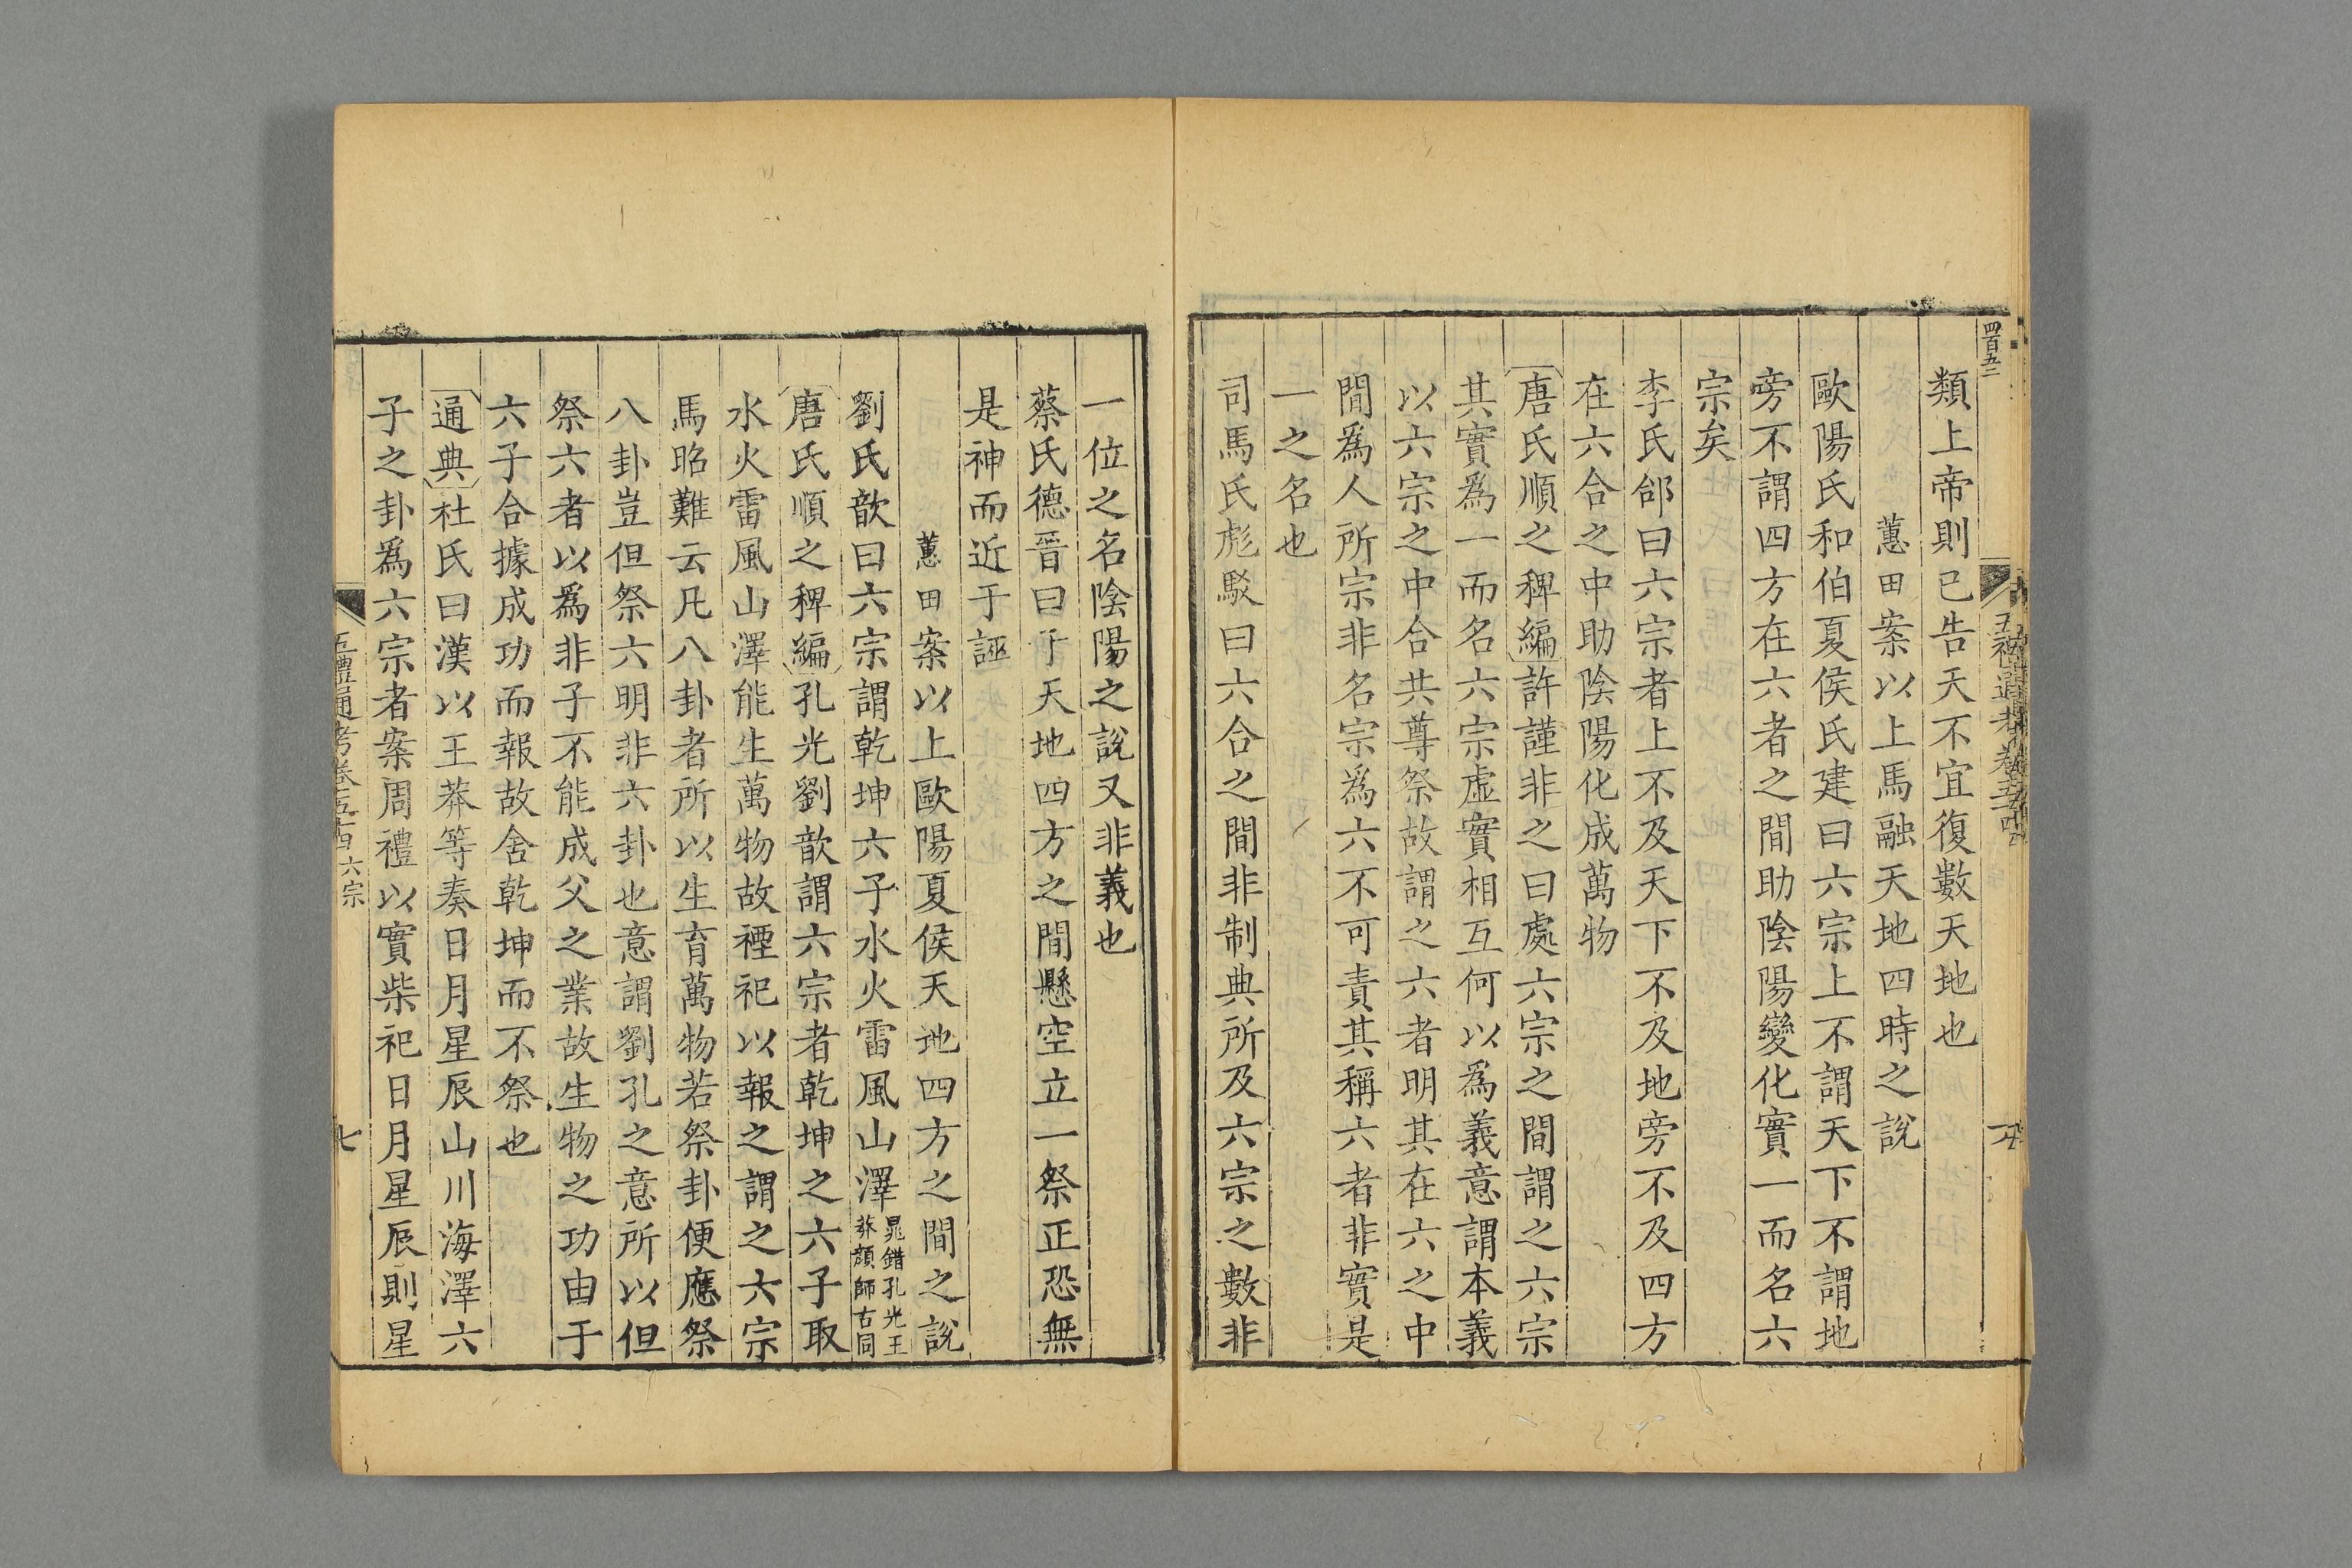 四百五二
類上帝則已告天不宜復數天地也
蕙田案以上馬融天地四時之說
歐陽氏和伯夏侯氏建曰六宗上不謂天下不謂地
旁不謂四方在六者之間助陰陽變化實一而名六
宗矣
李氏郃曰六宗者上不及天下不及地旁不及四方
在六合之中助陰陽化成萬物
唐氏順之稗編許謹非之曰處六宗之間謂之六宗
其實爲一而名六宗虛實相互何以爲義意謂本義
以六宗之中合共尊祭故謂之六者明其在六之中
間爲人所宗非名宗爲六不可責其稱六者非實是
一之名也
司馬氏彪駁曰六合之間非制典所及六宗之數非
一位之名陰陽之說又非義也
蔡氏德晉曰于天地四方之間懸空立一祭正恐無
是神而近于誣
蕙田案以上歐陽夏侯天地四方之間之說
劉氏歆曰六宗謂乾坤六子水火雷風山澤晁錯孔光王莽顔師古同
唐氏順之稗編孔光劉歆謂六宗者乾坤之六子取
水火雷風山澤能生萬物故禋祀以報之謂之六宗
馬昭難云凡八卦者所以生育萬物若祭卦便應祭
八卦豈但祭六明非六卦也意謂劉孔之意所以但
祭六者以爲非子不能成父之業故生物之功由于
六子合據成功而報故舍乾坤而不祭也
通典杜氏曰漢以王莽等奏日月星辰山川海澤六
子之卦爲六宗者案周禮以實柴祀日月星辰則星
五禮通考卷五十四 六宗
七